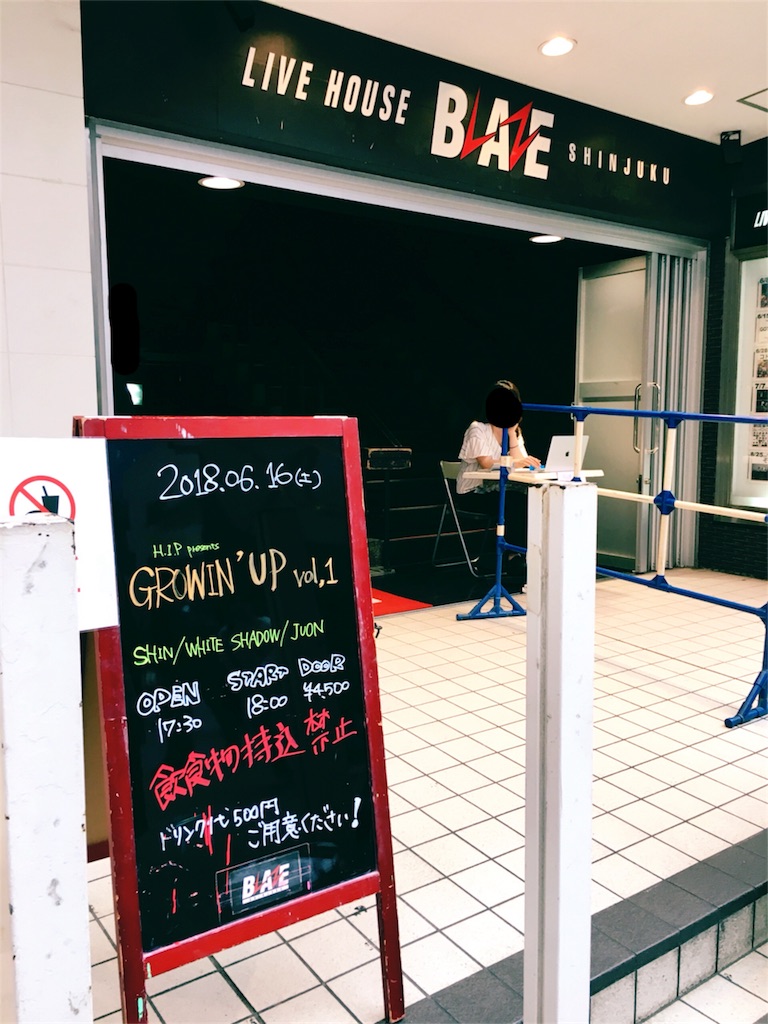 LIVE HOUSE BLAZE SHINJUKU
2018.06.16(土)
H.I.P presents
GROWIN'UP vol,1
SHIN/WHITE SHADOW/JUON
OPEN START DOOR
17:30 18:00 ¥4,500
飲食物持込禁止
ドリンク代500円
ご用意ください!
BLAZE